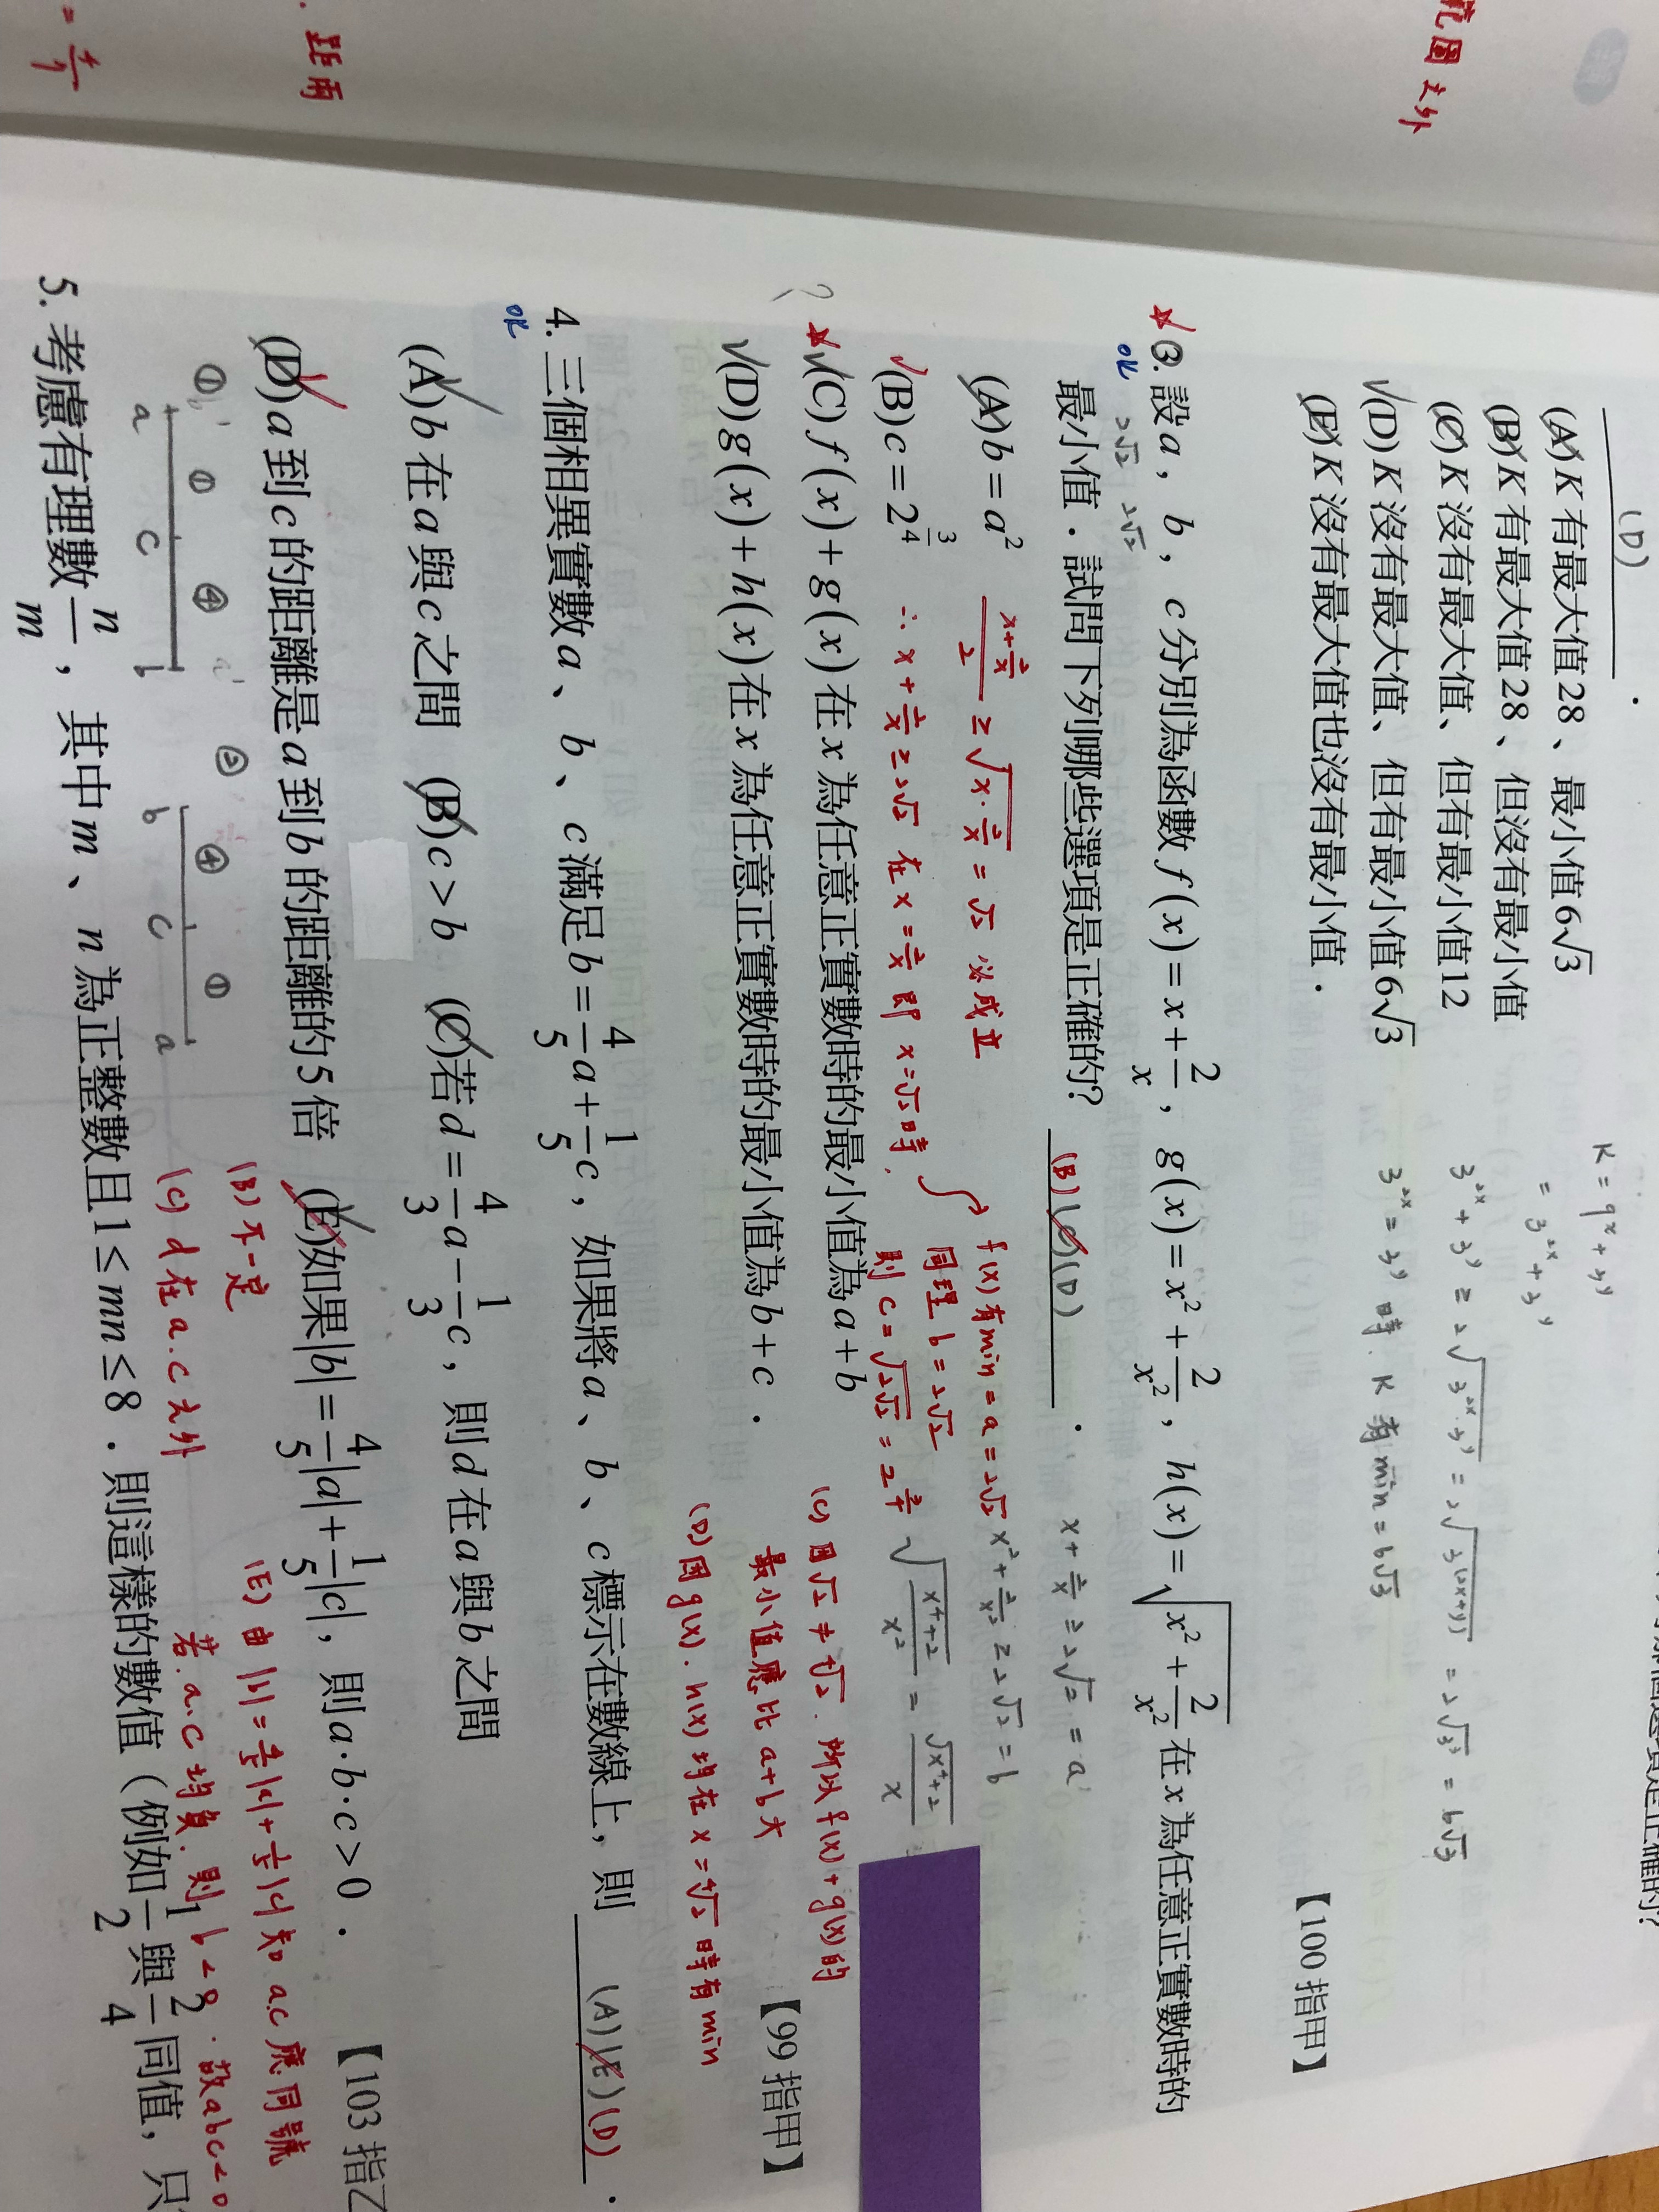 範圍之外
. 距兩
= 4/1
正確的?
(D)
.
(A) K 有最大值28、最小值6√3
(B) K 有最大值28、但沒有最小值
(C) K 沒有最大值、但有最小值12
(D) K 沒有最大值、但有最小值6√3
(E) K 沒有最大值也沒有最小值.
【100 指甲】
K = 9ˣ + 3ʸ
= 3²ˣ + 3ʸ
3²ˣ + 3ʸ ≥ 2√(3²ˣ·3ʸ) = 2√(3^(2x+y)) = 2√3³ = 6√3
3²ˣ = 3ʸ 時. K 有min = 6√3
3. 設a, b, c分別為函數 f(x) = x + 2/x, g(x) = x² + 2/x², h(x) = √(x² + 2/x²) 在 x 為任意正實數時的
OK
最小值.試問下列哪些選項是正確的? (B)(C)(D) .
2√2 2√2
(A) b = a²
(x + 2/x)/2 ≥ √(x·2/x) = √2 必成立
x + 2/x ≥ 2√2 = a
(B) c = 2^(3/4)
∴ x + 2/x ≥ 2√2 在 x = 2/x 即 x = √2 時,
f(x)有min = a = 2√2
x² + 2/x² ≥ 2√2 = b
同理 b = 2√2
則 c = √(2√2) = 2^(3/4)
√((x⁴+2)/x²) = √(x⁴+2)/x
(C) f(x) + g(x) 在 x 為任意正實數時的最小值為 a + b
?
(C) 因√2 ≠ ⁴√2. 所以 f(x) + g(x)的
最小值應比 a+b 大
(D) g(x) + h(x) 在 x 為任意正實數時的最小值為 b + c .
【99 指甲】
(D) 因 g(x). h(x) 均在 x = ⁴√2 時有min
4. 三個相異實數a、b、c滿足b = 4/5 a + 1/5 c, 如果將a、b、c標示在數線上, 則 (A)(E)(D) .
OK
(A) b 在 a 與 c 之間 (B) c > b (C) 若 d = 4/3 a − 1/3 c, 則 d 在 a 與 b 之間
(D) a 到 c 的距離是 a 到 b 的距離的 5 倍 (E) 如果|b| = 4/5|a| + 1/5|c|, 則a·b·c > 0 .
【103 指乙
(B) 不一定
(C) d 在 a.c 之外
(E) 由 |b| = 4/5|a| + 1/5|c| 知 a.c 應同號
若. a.c 均負. 則 b < 0. 故abc < 0
① ① ④ ② ④ ①
a c b b c a
5. 考慮有理數 n/m, 其中 m、n 為正整數且 1 ≤ mn ≤ 8 .則這樣的數值（例如 1/2 與 2/4 同值, 只